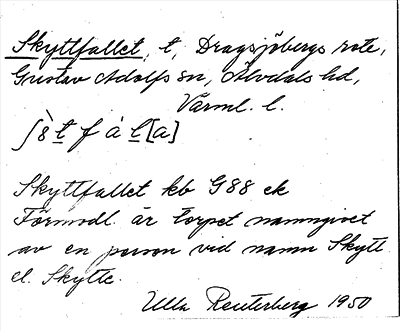 Skyttfallet, t, Dragsjöbergs rote,
Gustav Adolfs sn, Älvdals hd,
Värml. l.
Skyttfallet kb G88 ek
Förmodl. är torpet namngivet
av en person vid namn Skytt
el. Skytte.
Ulla Reuterberg 1950